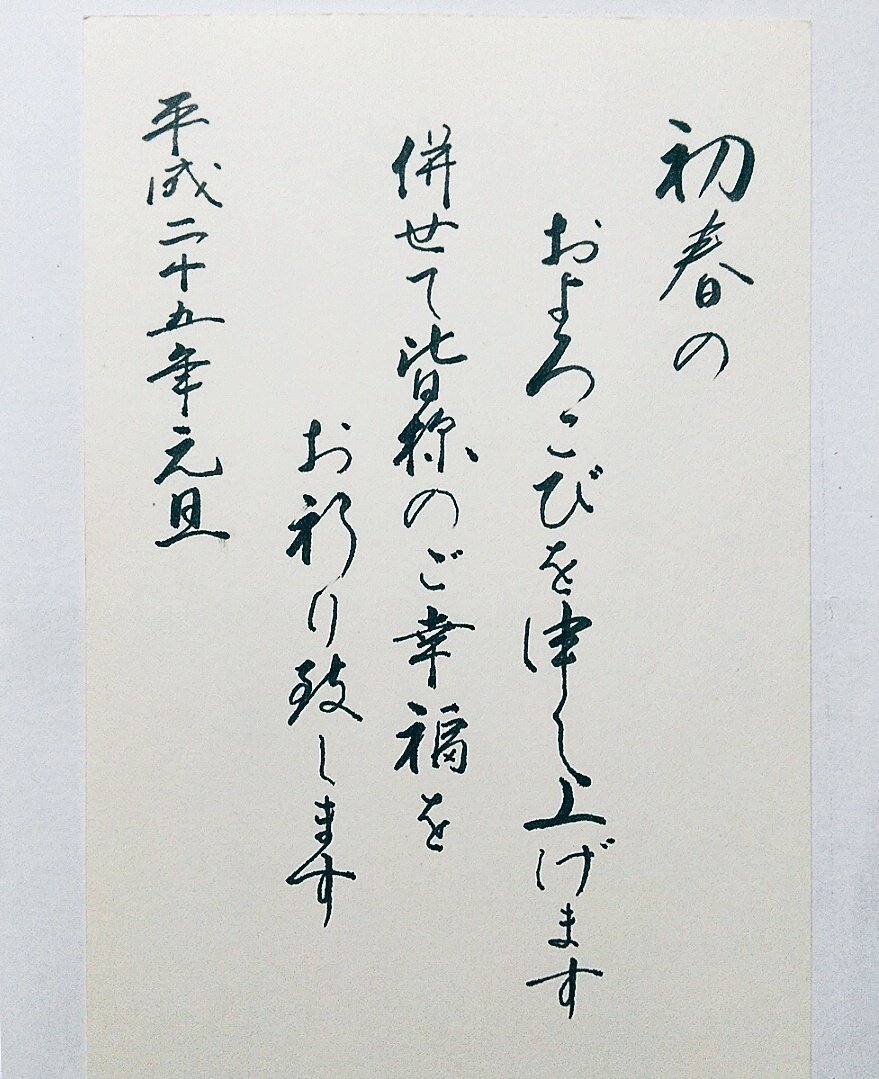 初春の
およろこびを申し上げます
併せて皆様のご幸福を
お祈り致します
平成二十五年元旦